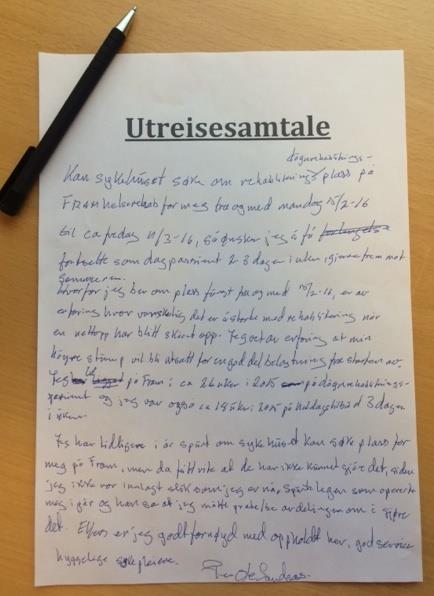 Utreisesamtale
døgnrehabiliterings-
Kan sykehuset søke om rehabiliteringsplass på
FRAM helserehab for meg fra og med mandag 15/2-16
til ca fredag 11/3-16, så ønsker jeg å få
fortsette som dagpasient 2-3 dager i uken, gjerne frem mot
sommeren.
Hvorfor jeg ber om plass først fra og med 15/2-16, er av
erfaring hvor vanskelig det er å starte med rehabilitering når
en nettopp har blitt skåret opp. Jeg vet av erfaring at min
høyre stump vil bli utsatt for en god del belastning fra starten av.
Jeg på Fram i ca 26 uker i 2015 på døgnrehabiliterings-
og jeg var også ca i 2015 på 3 dager
i uken.
Jeg har tidligere i år spurt om sykehuset kan søke plass for
meg på Fram, men da fått vite at de har ikke kunnet gjøre det, siden
jeg ikke var innlagt slik som jeg er nå. Spurte legen som opererte
meg i går og han sa at jeg måtte avdelingen om å gjøre
det. Ellers er jeg godt fornøyd med oppholdet her, god service
hyggelige sykepleiere.